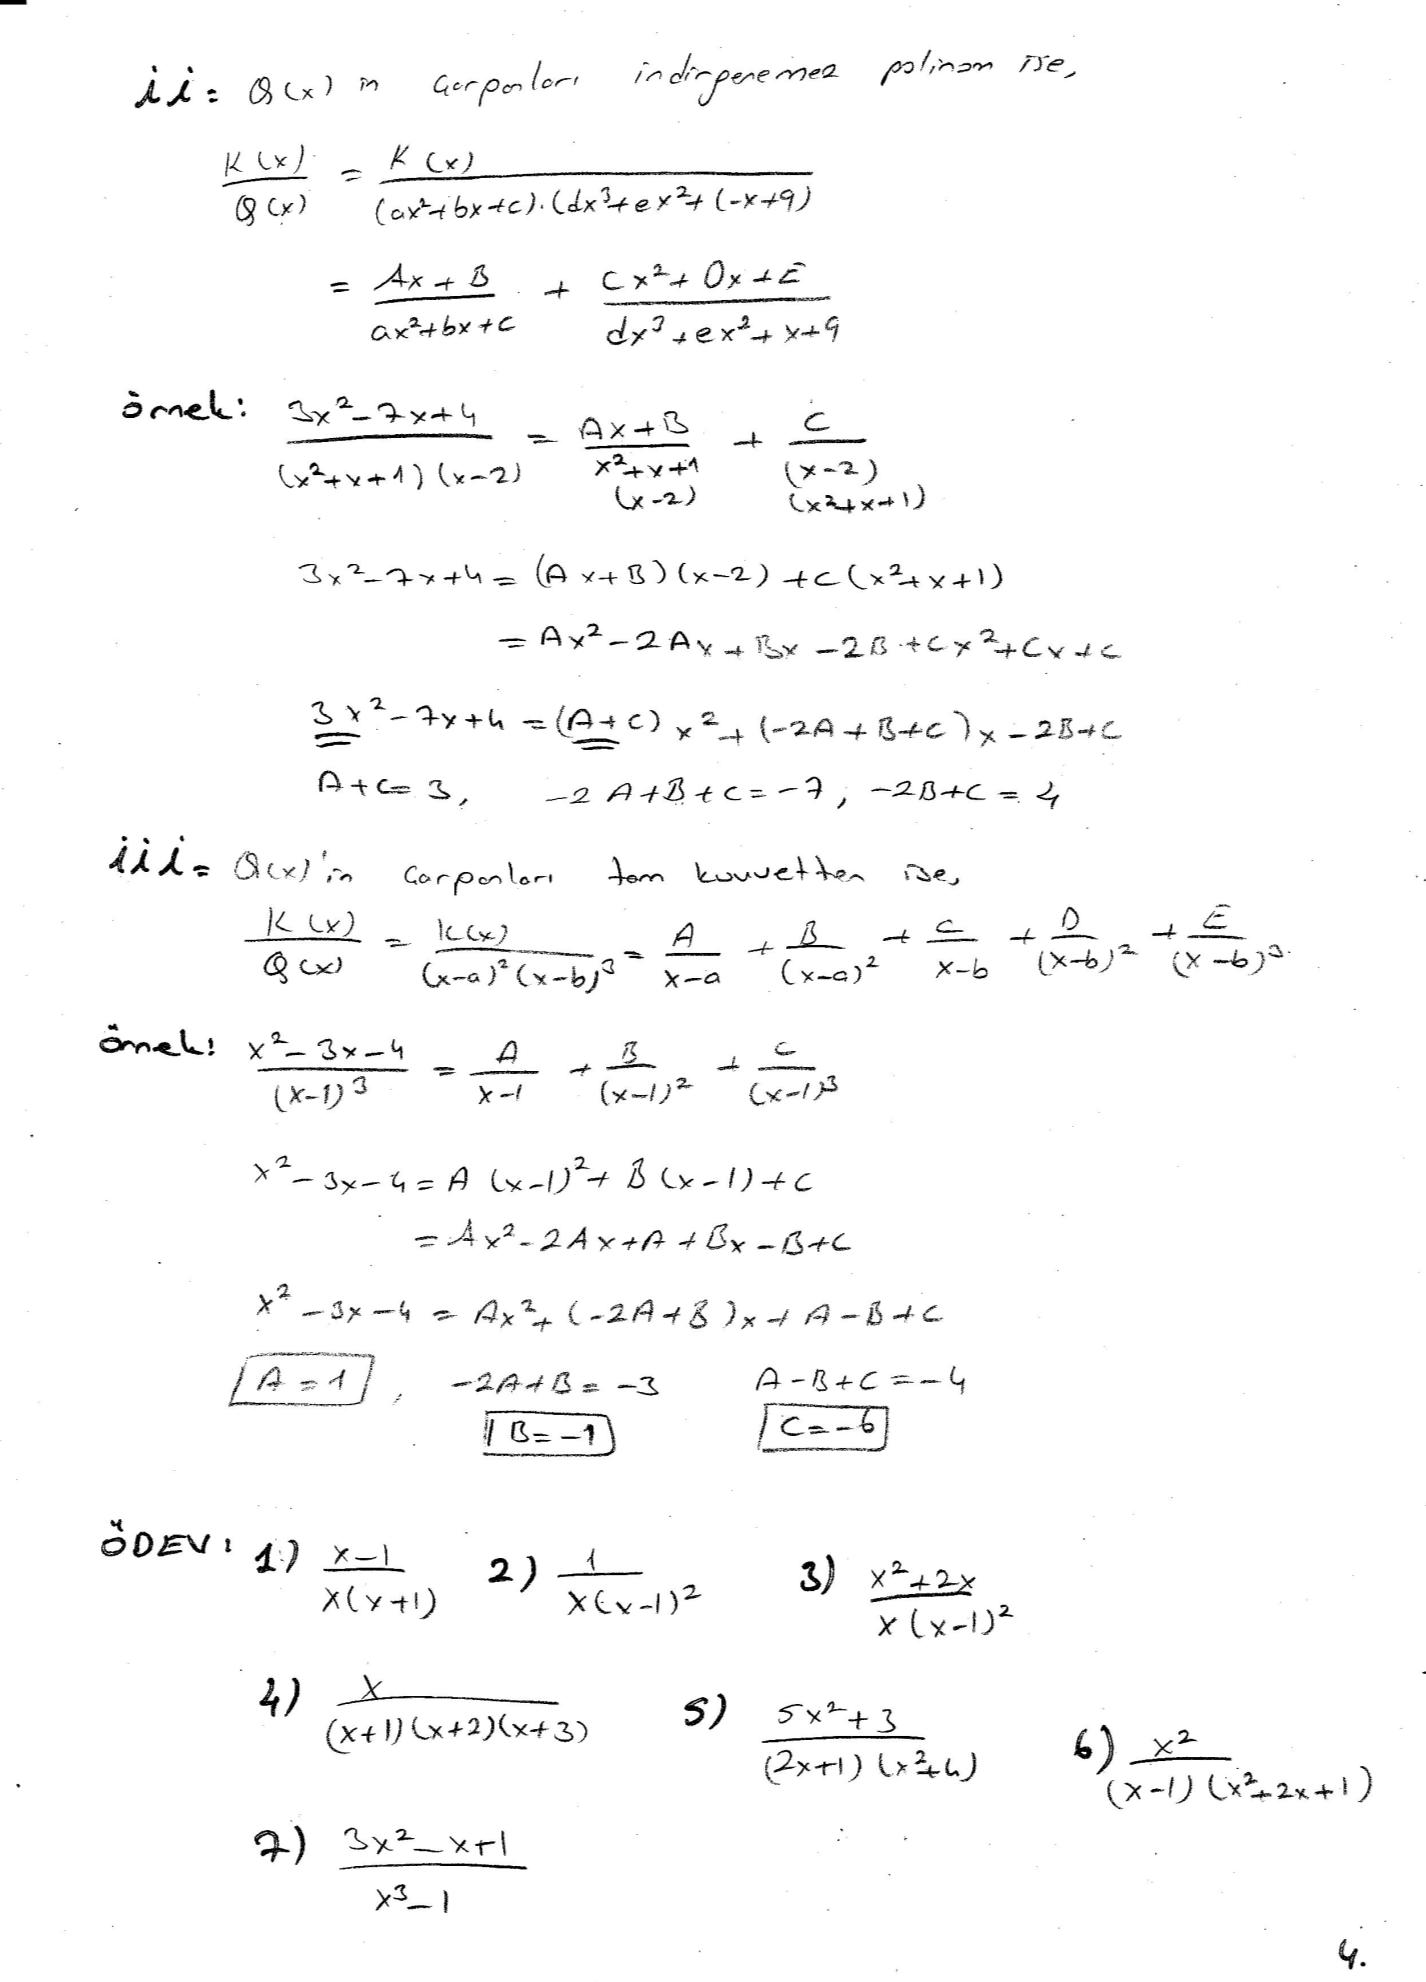 ii= Q(x) in Çarpanları indirgenemez polinom ise,
K(x)/Q(x) = K(x)/(ax²+bx+c).(dx³+ex²+(-x+9)
= Ax+B/ax²+bx+c + Cx²+Dx+E/dx³+ex²+x+9
örnek: 3x²-7x+4/(x²+x+1)(x-2) = Ax+B/x²+x+1 + C/(x-2)
(x-2) (x²+x+1)
3x²-7x+4=(Ax+B)(x-2)+C(x²+x+1)
=Ax²-2Ax+Bx-2B+Cx²+Cx+C
3x²-7x+4=(A+C)x²+(-2A+B+C)x-2B+C
A+C=3, -2A+B+C=-7, -2B+C=4
iii= Q(x)'in Çarpanları tam kuvvetten ise,
K(x)/Q(x) = K(x)/(x-a)²(x-b)³ = A/x-a + B/(x-a)² + C/x-b + D/(x-b)² + E/(x-b)³
örnek: x²-3x-4/(x-1)³ = A/x-1 + B/(x-1)² + C/(x-1)³
x²-3x-4=A(x-1)²+B(x-1)+C
=Ax²-2Ax+A+Bx-B+C
x²-3x-4=Ax²+(-2A+B)x+A-B+C
A=1, -2A+B=-3 A-B+C=-4
B=-1 C=-6
ÖDEV: 1) x-1/x(x+1) 2) 1/x(x-1)² 3) x²+2x/x(x-1)²
4) x/(x+1)(x+2)(x+3) 5) 5x²+3/(2x+1)(x²+4) 6) x²/(x-1)(x²+2x+1)
7) 3x²-x+1/x³-1
4.